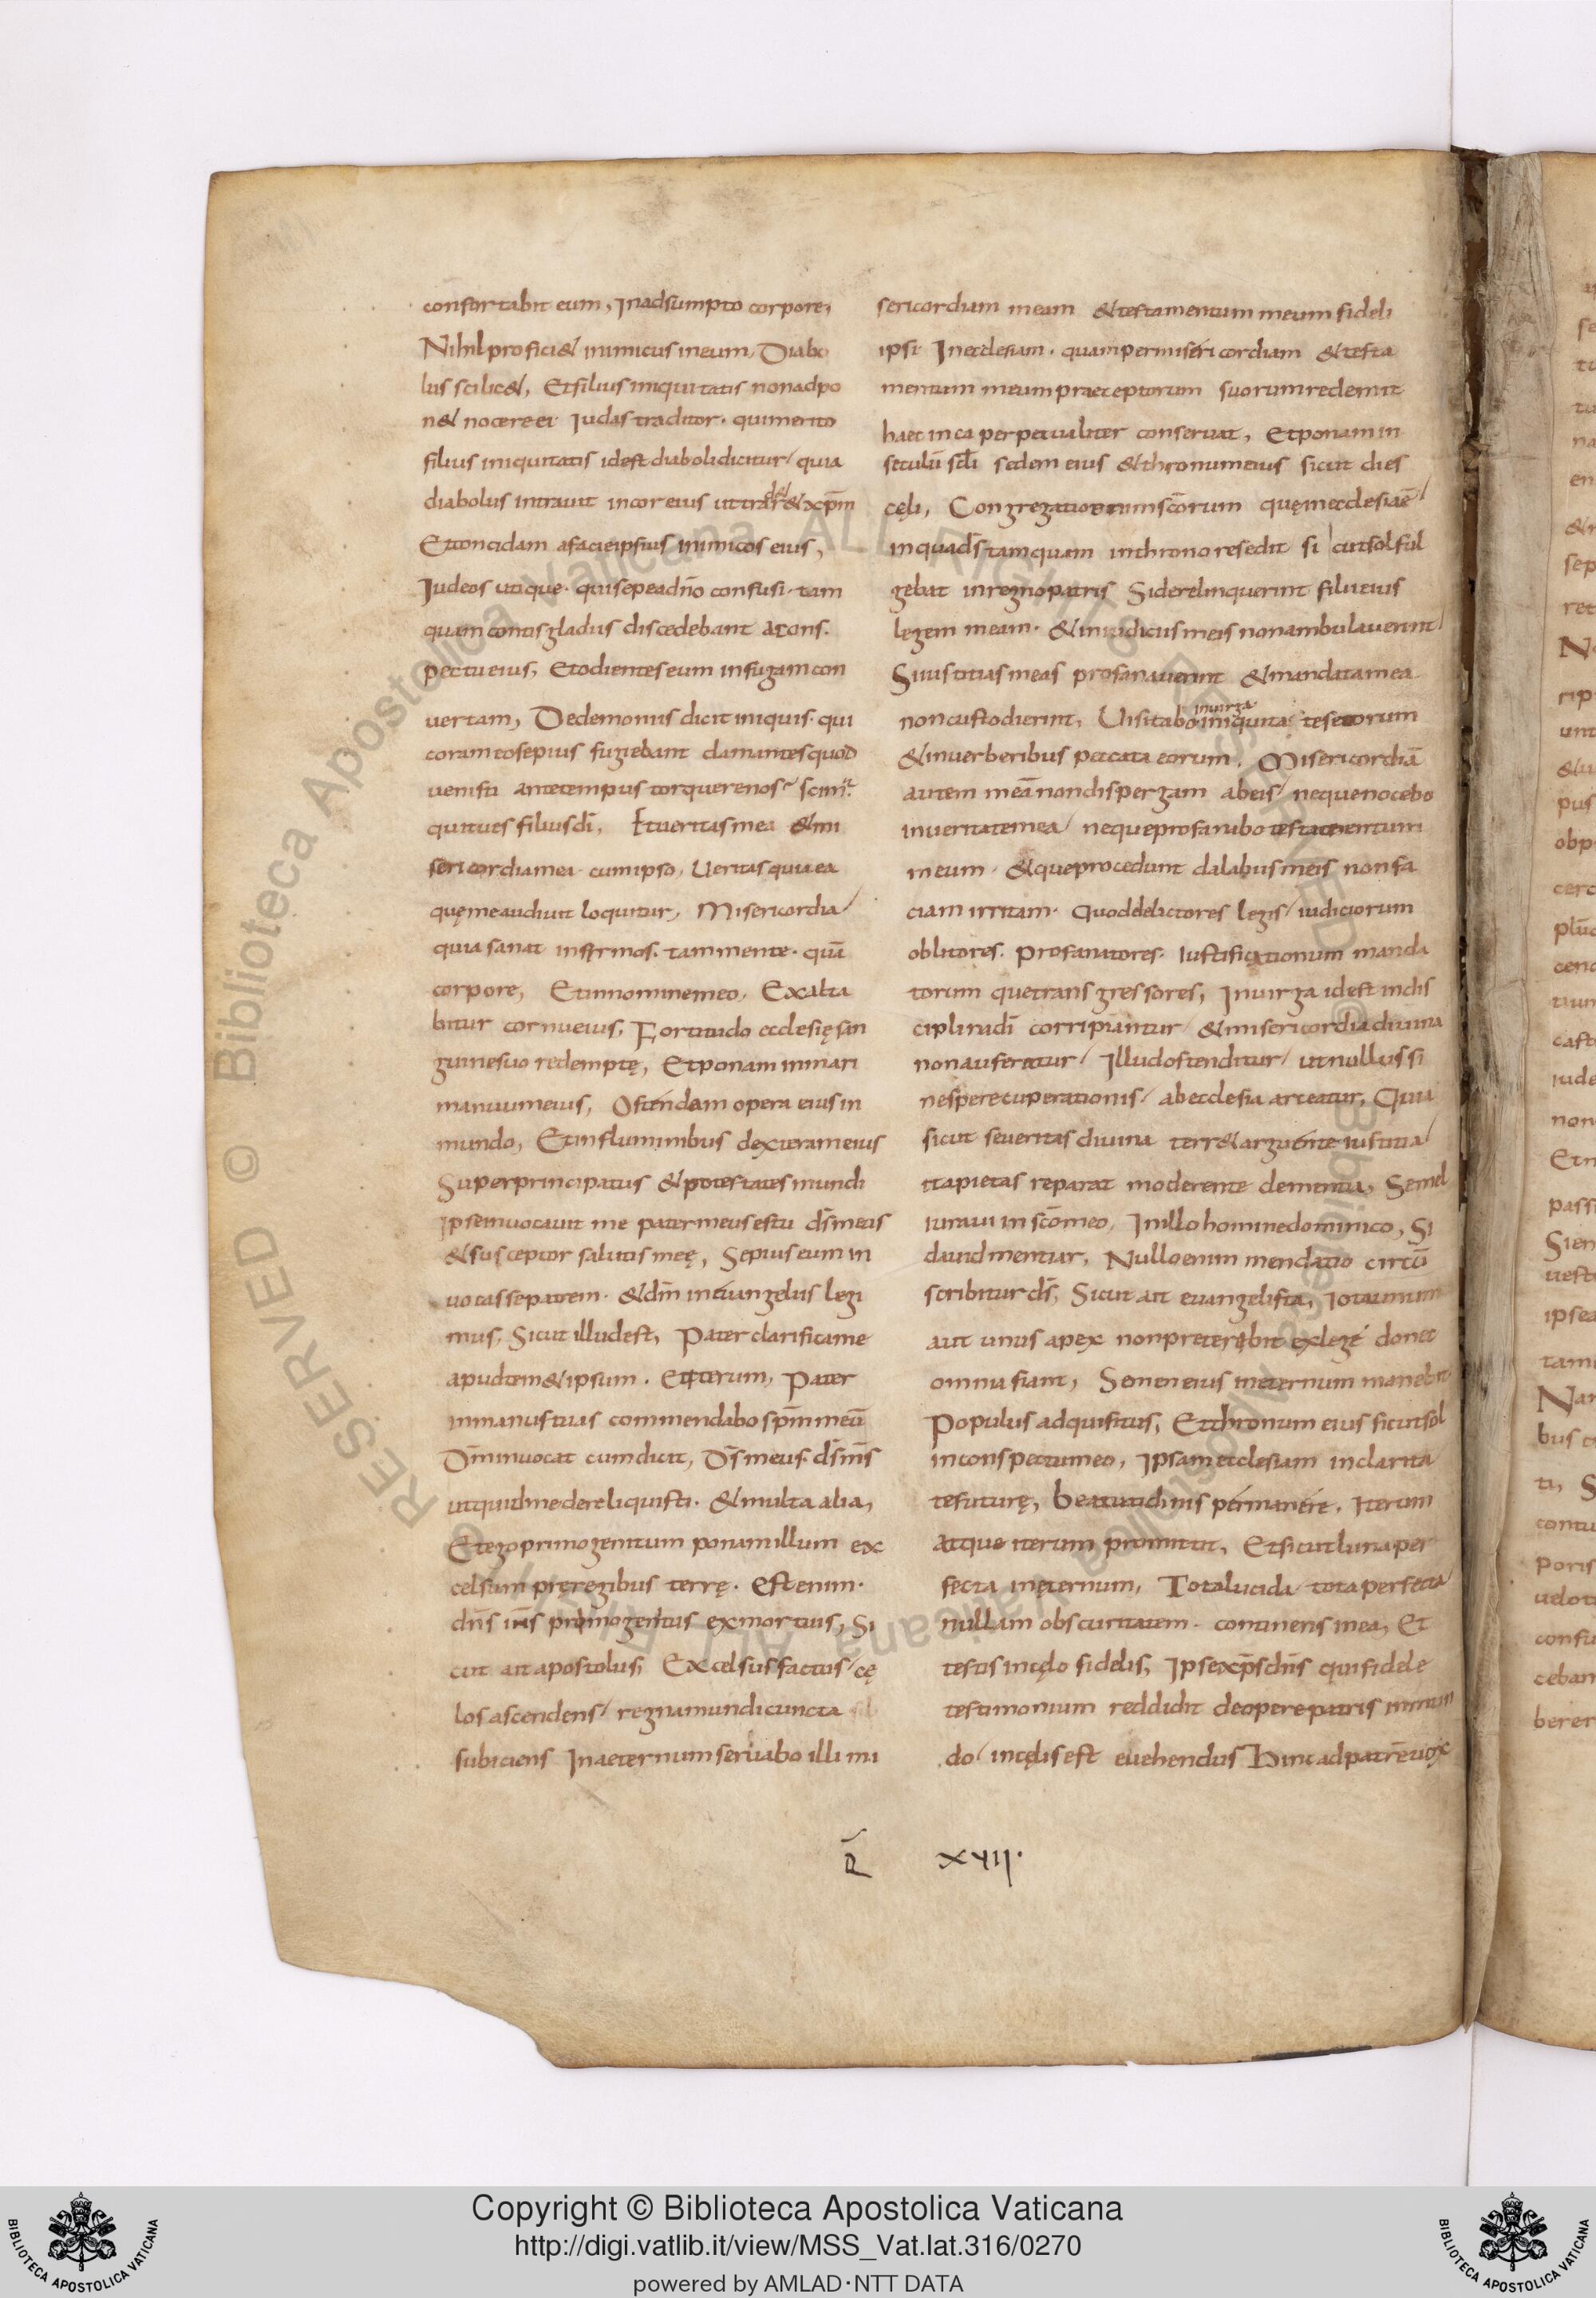 confortabit eum, Inadsumpto corpore,
Nihil profici& inimicus ineum, Diabo
lus scilic&, Etfilius iniquitatis nonadpo
n& nocere ei Iudas traditor· quimerito
filius iniquitatis idest diabolidicitur/ quia
diabolus intrauit incor eius ut trader& xp̄m
Etconcidam afacieipsius inimicos eius,
Iudeos utique· quisepeadn̄o confusi· tam
quam contis gladiis discedebant acons·
pectueius, Etodientes eum infugam con
uertam, Dedemoniis dicit iniquis· qui
coram eo sepius fugiebant clamantes quod
uenisti ante tempus torquere nos
quitu es filius dī, Etueritas mea & mi
sericordia mea cum ipso, Ueritas quia ea
quę me audiuit loquitur, Misericordia
quia sanat infirmos· tam mente· quā
corpore, Etinnomine meo, Exalta
bitur cornu eius, Fortitudo ecclesię san
guine suo redemptę, Etponam inmari
manum eius, Ostendam opera eius in
mundo, Etinfluminibus dexteram eius
Super principatus & potestates mundi
Ipse inuocauit me pater meus es tu ds̄ meus
& susceptor salutis meę, Sepius eum in
uocasse patrem· & dm̄ ineuangeliis legi
mus, Sicut illud est, Pater clarifica me
apudtem&ipsum· Etiterum, Pater
inmanus tuas commendabo sp̄m meū
Dm̄ inuocat cum dicit, Ds̄ meus· ds̄ ms̄
utquid me dereliquisti· & multa alia,
Etego primogenitum ponam illum ex
celsum pręregibus terrę· Est enim·
dn̄s primogenitus exmortuis, Si
cut ait apostolus, Excelsus factus/ cę
los ascendens/ regna mundi cuncta
subiciens Inaeternum seruabo illi mi
sericordiam meam & testamentum meum fideli
ipsi Inecclesiam· quam per misericordiam & testa
mentum meum praeceptorum suorum redemit
haec inea perpetualiter conseruat, Etponam in
seculū sc̄li sedem eius & thronum eius sicut dies
cęli, Congregationum sc̄orum quęinecclesiaē
inqua ds̄ tamquam inthrono resedit si cut sol ful
gebat inregno patris Si dereliquerint filii eius
legem meam· & iniudiciis meis non ambulauerint
Siiustitias meas profanauerint & mandata mea
noncustodierint, Uisitabo inuirga iniquitates eorum
& inuerberibus peccata eorum, Misericordiā
autem meā non dispergam ab eis/ neque nocebo
inueritate mea/ neque profanabo testamentum
meum· & que procedunt dalabiis meis non fa
ciam irritam· Quod delictores legis/ iudiciorum
oblitores· profanatores· iustificationum manda
torum que transgressores, Inuirga id est indis
ciplina dī corripiantur/ & misericordia diuina
non auferatur/ Illud ostenditur/ ut nullus si
ne spe recuperationis/ ab ecclesia arceatur, Quia
sicut seueritas diuina terr& arguente iustitia/
ita pietas reparat moderente clementia, Semel
iuraui in sc̄o meo, Inillo homine dominico, Si
dauid mentiar, Nullo enim mendatio circū
scribitur ds̄, Sicut ait euangelista, Iota unum
aut unus apex non preteribit ex lege donec
omnia fiant, Semen eius ineternum manebit
Populus adquisitus, Etthronum eius sicut sol
inconspectu meo, Ipsam ecclesiam inclarita
te futurę, beatitudinis permanere, Iterum
atque iterum promittit, Et sicut luna per
fecta inęternum, Tota lucida tota perfecta
nullam obscuritatem· continens inea, Et
testis incęlo fidelis, Ipse xp̄s dn̄s qui fidele
testimonium reddidit deopere patris inmun
do/ incęlis est euehendus Hinc ad patrē uox
XVII·
Copyright © Biblioteca Apostolica Vaticana
http://digi.vatlib.it/view/MSS_Vat.lat.316/0270
powered by AMLAD·NTT DATA
BIBLIOTECA APOSTOLICA VATICANA
BIBLIOTECA APOSTOLICA VATICANA